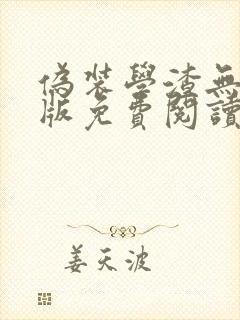 偽裝學渣無
版免費閱讀
姜天波